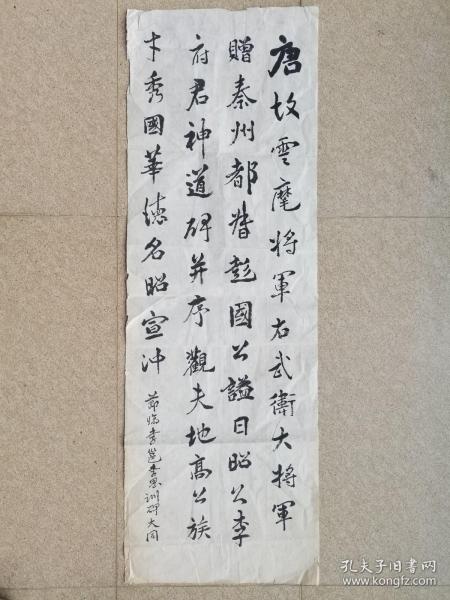 唐故雲麾將軍右武衛大將軍
贈秦州都督彭國公謚曰昭公李
府君神道碑并序觀夫地高公族
才秀國華德名昭宣沖
節臨李邕李思訓碑大同
孔夫子旧书网
www.kongfz.com